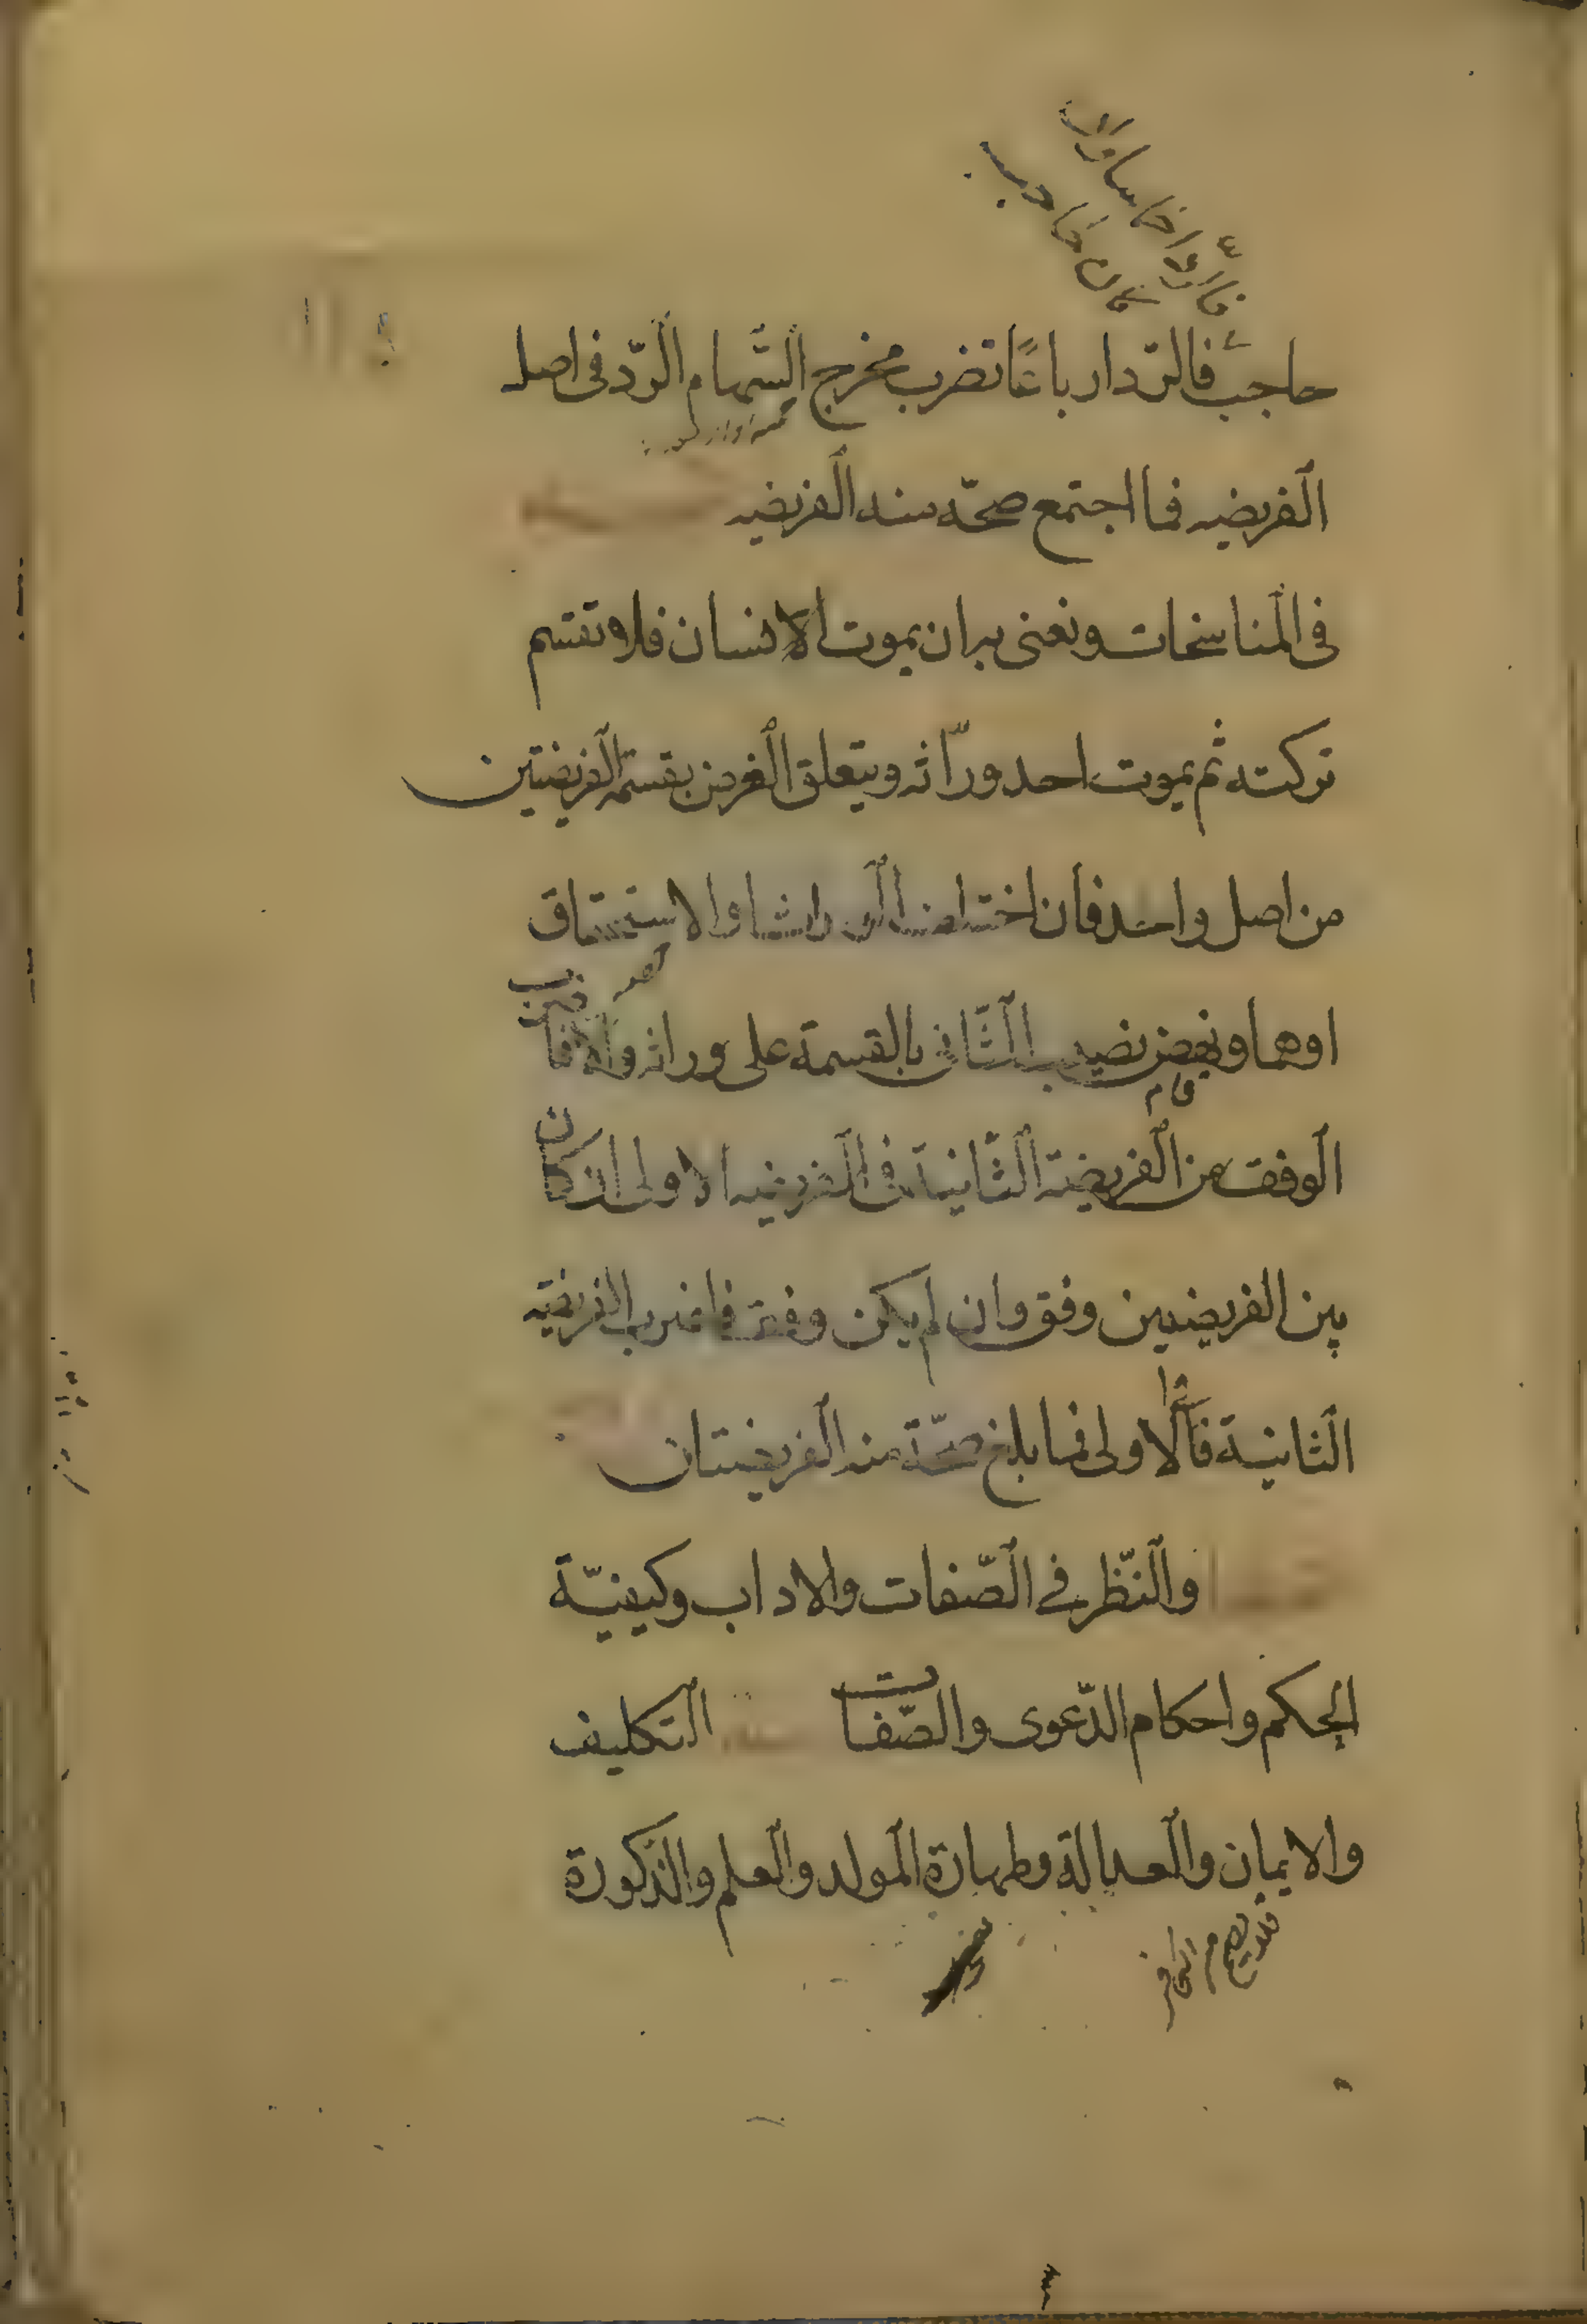 حاجب فالرّد ارباعًا تضرب مخرج السّهام الرّد فى اصل
الفريضه فما اجتمع صحّه منه الفريضه
فى المناسخات ونعنى به ان يموت الانسان فلا وتقسم
تركته ثم يموت احد ورّاثه ويتعلق الغرض بقسمة الفريضتين
من اصل واحد فان اختلف الوراث او الاستحقاق
او هما ونهض نصيب الثّانى بالقسمة على وراثه والا فاضرب
الوفق من الفريضة الثّانية فى الفريضه الاولى ان كان
بين الفريضتين وفق وان لم يكن وفق فاضرب الفريضه
الثانية فى الاولى فما بلغ صحّة منه الفريضتان
والنّظر في الصّفات والاداب وكيفيّة
الحكم واحكام الدّعوى والصّفات التكليف
والايمان والعدالة وطهارة المولد والعلم والذّكورة